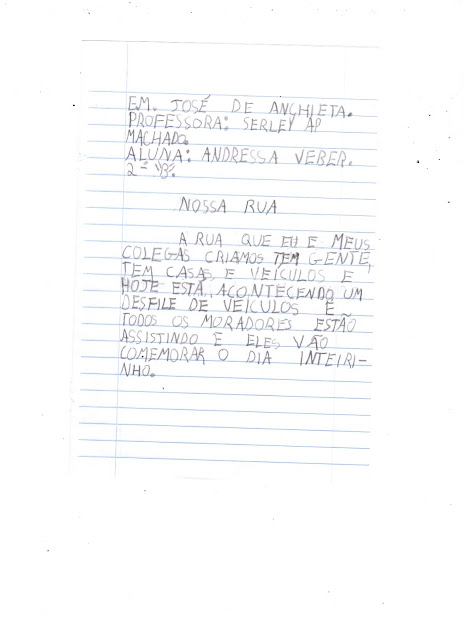 EM. JOSÉ DE ANCHIETA.
PROFESSORA: SERLEY AP
MACHADO.
ALUNA: ANDRESSA VEBER.
2ª "B".
NOSSA RUA
A RUA QUE EU E MEUS
COLEGAS CRIAMOS TEM GENTE,
TEM CASAS, E VEÍCULOS E
HOJE ESTÁ, ACONTECENDO UM
DESFILE DE VEÍCULOS E
TODOS OS MORADORES ESTÃO
ASSISTINDO E ELES VÃO
COMEMORAR O DIA INTEIRI-
NHO.